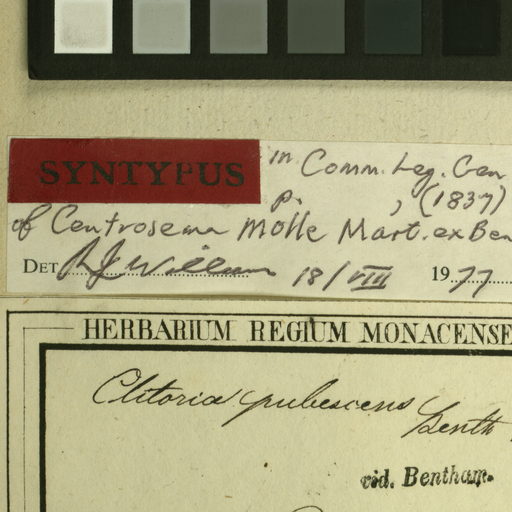 SYNTYPUS in Comm. Leg. Gen
p. , (1837)
of Centrosema molle Mart. ex Ben
DET 18/VIII 1977
HERBARIUM REGIUM MONACENSE
Clitoria pubescens Benth
vid. Bentham.